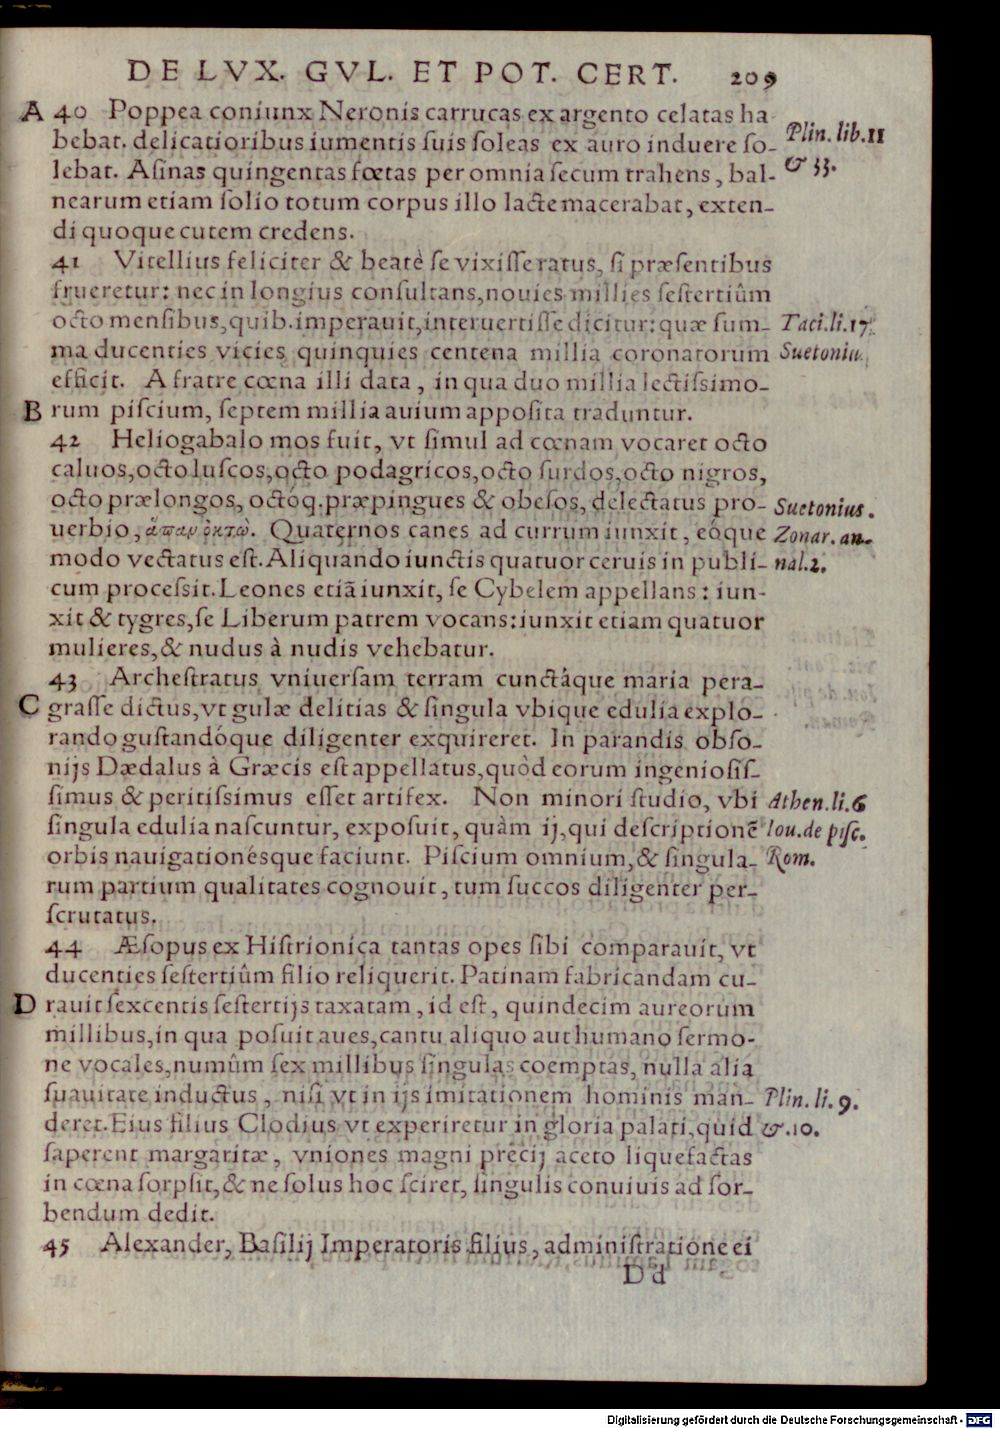 DE LVX. GVL. ET POT. CERT. 209
A 40 Poppea coniunx Neronis carrucas ex argento celatas ha
bebat. delicatioribus iumentis suis soleas ex auro induere so- Plin. lib. 11
lebat. Asinas quingentas fœtas per omnia secum trahens, bal- & 33.
nearum etiam solio totum corpus illo lacte macerabat, exten-
di quoque cutem credens.
41 Vitellius feliciter & beatè se vixisse ratus, si præsentibus
frueretur: nec in longius consultans, nouies millies sestertiûm
octo mensibus, quib. imperauit, interuertisse dicitur: quæ sum- Taci. li. 17.
ma ducenties vicies quinquies centena millia coronatorum Suetoniu.
efficit. A fratre cœna illi data, in qua duo millia lectissimo-
B rum piscium, septem millia auium apposita traduntur.
42 Heliogabalo mos fuit, vt simul ad cœnam vocaret octo
caluos, octo luscos, octo podagricos, octo surdos, octo nigros,
octo prælongos, octóq. præpingues & obesos, delectatus pro- Suetonius.
uerbio, ἅπαν ὀκτώ. Quaternos canes ad currum iunxit, eóque Zonar. an-
modo vectatus est. Aliquando iunctis quatuor ceruis in publi- nal. 2.
cum processit. Leones etiã iunxit, se Cybelem appellans: iun-
xit & tygres, se Liberum patrem vocans: iunxit etiam quatuor
mulieres, & nudus à nudis vehebatur.
43 Archestratus vniuersam terram cunctáque maria pera-
C grasse dictus, vt gulæ delitias & singula vbique edulia explo-
rando gustandóque diligenter exquireret. In parandis obso-
nijs Dædalus à Græcis est appellatus, quòd eorum ingeniosis-
simus & peritissimus esset artifex. Non minori studio, vbi Athen. li. 6
singula edulia nascuntur, exposuit, quàm ij, qui descriptionẽ Iou. de pisc.
orbis nauigationésque faciunt. Piscium omnium, & singula- Rom.
rum partium qualitates cognouit, tum succos diligenter per-
scrutatus.
44 Æsopus ex Histrionica tantas opes sibi comparauit, vt
ducenties sestertiûm filio reliquerit. Patinam fabricandam cu-
D rauit sexcentis sestertijs taxatam, id est, quindecim aureorum
millibus, in qua posuit aues, cantu aliquo aut humano sermo-
ne vocales, numûm sex millibus singulas coemptas, nulla alia
suauitate inductus, nisi vt in ijs imitationem hominis man- Plin. li. 9.
deret. Eius filius Clodius vt experiretur in gloria palati, quid & 10.
saperent margaritæ, vniones magni precij aceto liquefactas
in cœna sorpsit, & ne solus hoc sciret, singulis conuiuis ad sor-
bendum dedit.
45 Alexander, Basilij Imperatoris filius, administratione ei
Dd
Digitalisierung gefördert durch die Deutsche Forschungsgemeinschaft - DFG